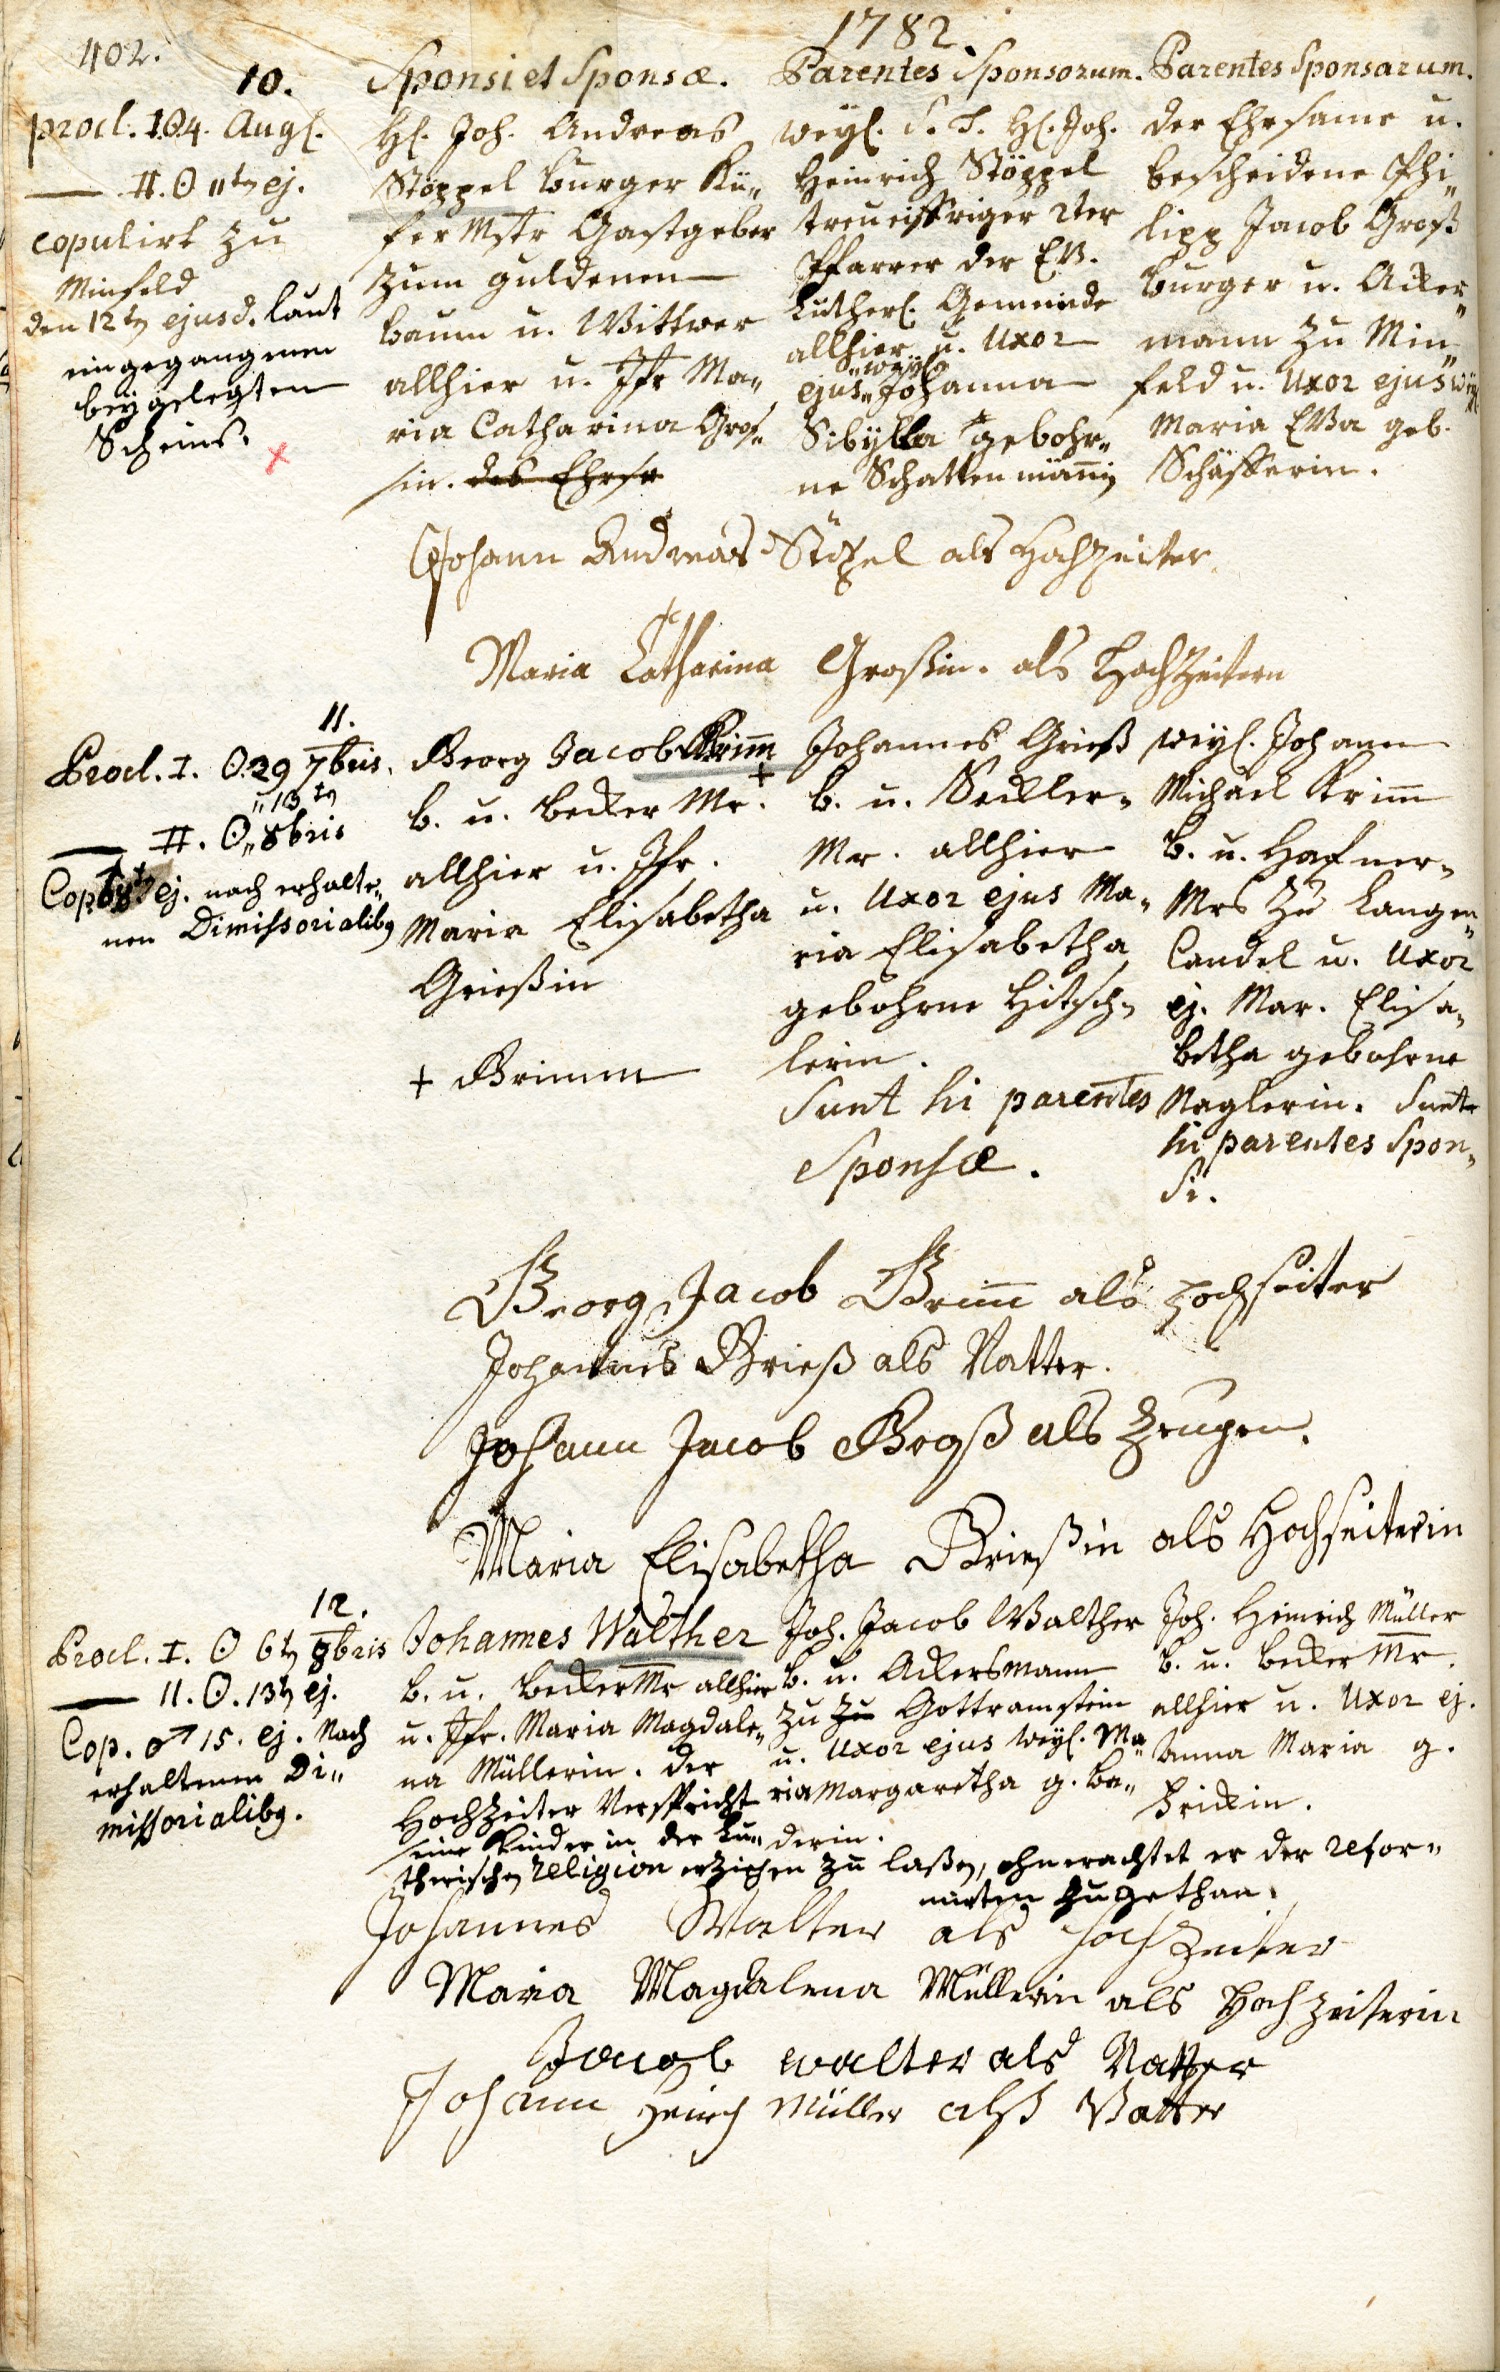 402.
1782.
Sponsi et Sponsæ. Parentes Sponsorum. Parentes Sponsarum.
10.
procl. I. O 4. Aug.
— II. O 11t ej.
copulirt zu
Minfeld
den 12t ejusd. laut
eingegangenen
beygelegten
Scheins.
H. Joh. Andreas
Stöppel burger Kü„
fer Mstr Gastgeber
zum guldenen
baum u. Wittwer
allhier u. Jfr Ma„
ria Catharina Gros„
sin. das Ehrsa
weyl. S. T. H. Joh.
Heinrich Stöppel
treueiffriger 2ter
Pfarrer der Ev.
Lutherl. Gemeinde
allhier u. Uxor
weyl.
ejus„ Johanna
Sibylla gebohr„
ne Schattenmännin
der Ehrsame u.
bescheidene Phi„
lipp Jacob Groß
burger u. Acker„
mann zu Min„
feld u. Uxor ejus weyl.
Maria Eva geb.
Schäfferin.
Johann Andreas Stöpel als Hochzeiter.
Maria Catharina Großin. als Hochzeitern
11.
Procl. I. O. 29 7bris.
„13t
— II. O„ 8bris
Cop. ej. nach erhalte„
nen Dimissorialibg
Georg Jacob Krimm
b. u. becker Mr. +
allhier u. Jfr.
Maria Elisabetha
Grießin
+ Grimm
Johannes Grieß
b. u. Seckler„
Mr. allhier
u. Uxor ejus Ma„
ria Elisabetha
gebohrne Hitsch„
lerin.
Sunt hi parentes
Sponsæ.
weyl. Johann
Michael Krimm
b. u. Hafner„
Mrs zu Langen„
Candel u. Uxor
ej. Mar. Elisa„
betha gebohrne
Naglerin. Sunt
hi parentes Spon„
si.
Georg Jacob Grimm als Hochseiter
Johannes Grieß als Vatter.
Johann Jacob Groß als Zeugen.
Maria Elisabetha Grießin als Hochseiterin
12.
Procl. I. O 6t 8bris
— II. O. 13t ej.
Cop. ♂ 15. ej. Nach
erhaltenen Di„
missorialibg.
Johannes Walther
b. u. becker Mr allhier
u. Jfr. Maria Magdale„
na Müllerin. der
Hochzeiter verspricht
seine Kinder in der Lu„
therischen religion erziehen zu laßen, ohnerachtet er der refor„
mirten zugethan.
Joh. Jacob Walther
b. u. Ackersmann
zu zu Gottramstein
u. Uxor ejus weyl. Ma„
ria Margaretha g. Ba„
derin.
Joh. Heinrich Müller
b. u. becker Mr.
allhier u. Uxor ej.
Anna Maria g.
Brickin.
Johannes Walter als Hochzeiter
Maria Magdalena Müllerin als Hochzeiterin
Jacob walter als Vatter
Johann Heinrch Müller alß Vatter